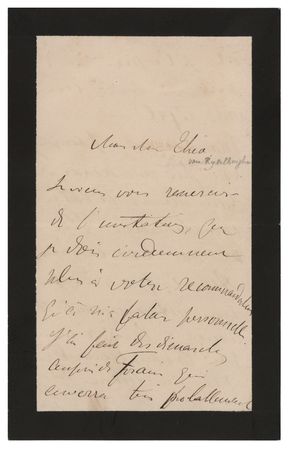 Mon cher Théo
van Rysselberghe
Je veux vous remercier
de l'invitation, que
je dois évidemment
plus à votre recommandation
qu'à ma personnelle.
J'ai fait des démarches
auprès de Forain qui
enverra très probablement